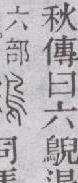 秋傳曰六鶂
六部 同